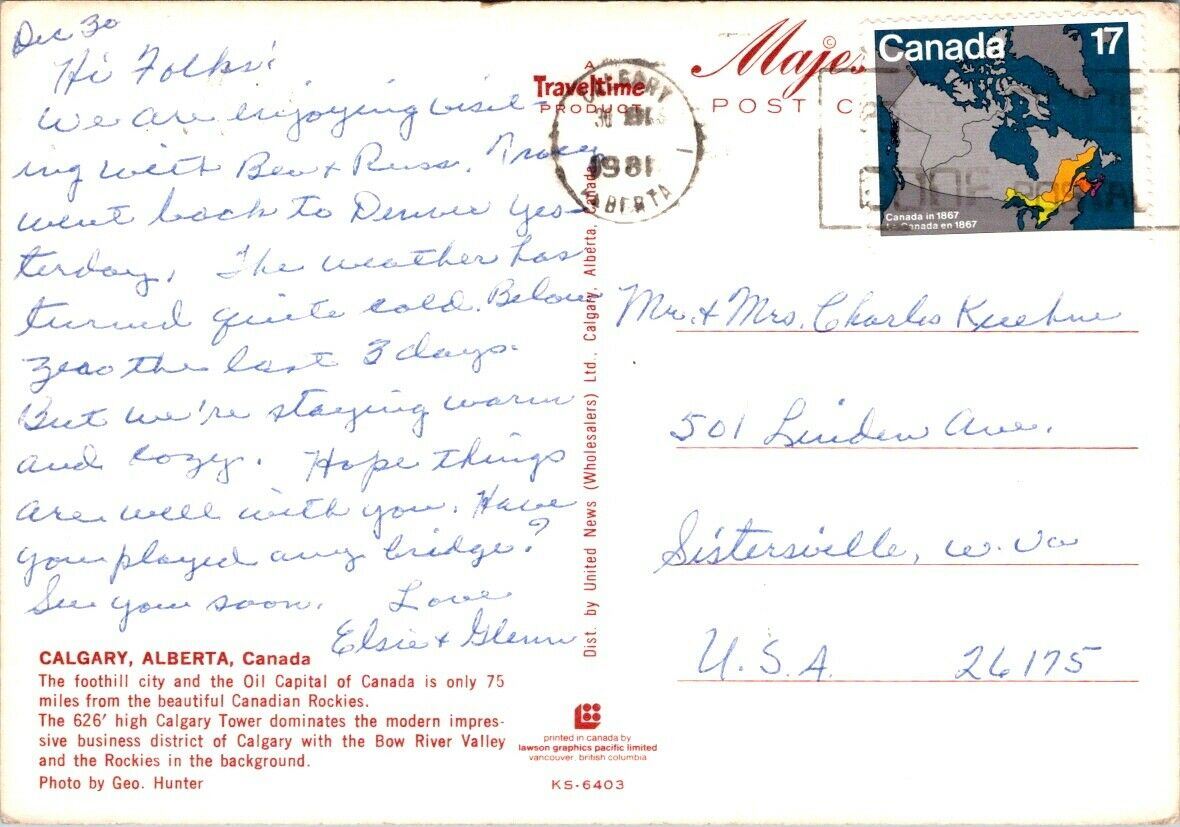 Dec 30
Hi Folks!
We are enjoying visit-
ing with Bev + Russ. Tracey
went back to Denver yes-
terday. The weather has
turned quite cold. Below
zero the last 3 days.
But we're staying warm
and cozy. Hope things
are well with you. Have
you played any bridge?
See you soon. Love
Elsie + Glenn
CALGARY, ALBERTA, Canada
The foothill city and the Oil Capital of Canada is only 75
miles from the beautiful Canadian Rockies.
The 626' high Calgary Tower dominates the modern impres-
sive business district of Calgary with the Bow River Valley
and the Rockies in the background.
Photo by Geo. Hunter
A
Traveltime
PRODUCT
CALGARY
30
1981
ALBERTA
Dist. by United News (Wholesalers) Ltd., Calgary, Alberta, Canada
printed in canada by
lawson graphics pacific limited
vancouver, british columbia
KS-6403
Majes
©
POST C
Canada 17
Canada in 1867
Le Canada en 1867
CODE POSTAL
Mr. + Mrs. Charles Kuehne
501 Linden Ave.
Sistersville, W. Va
U.S.A. 26175